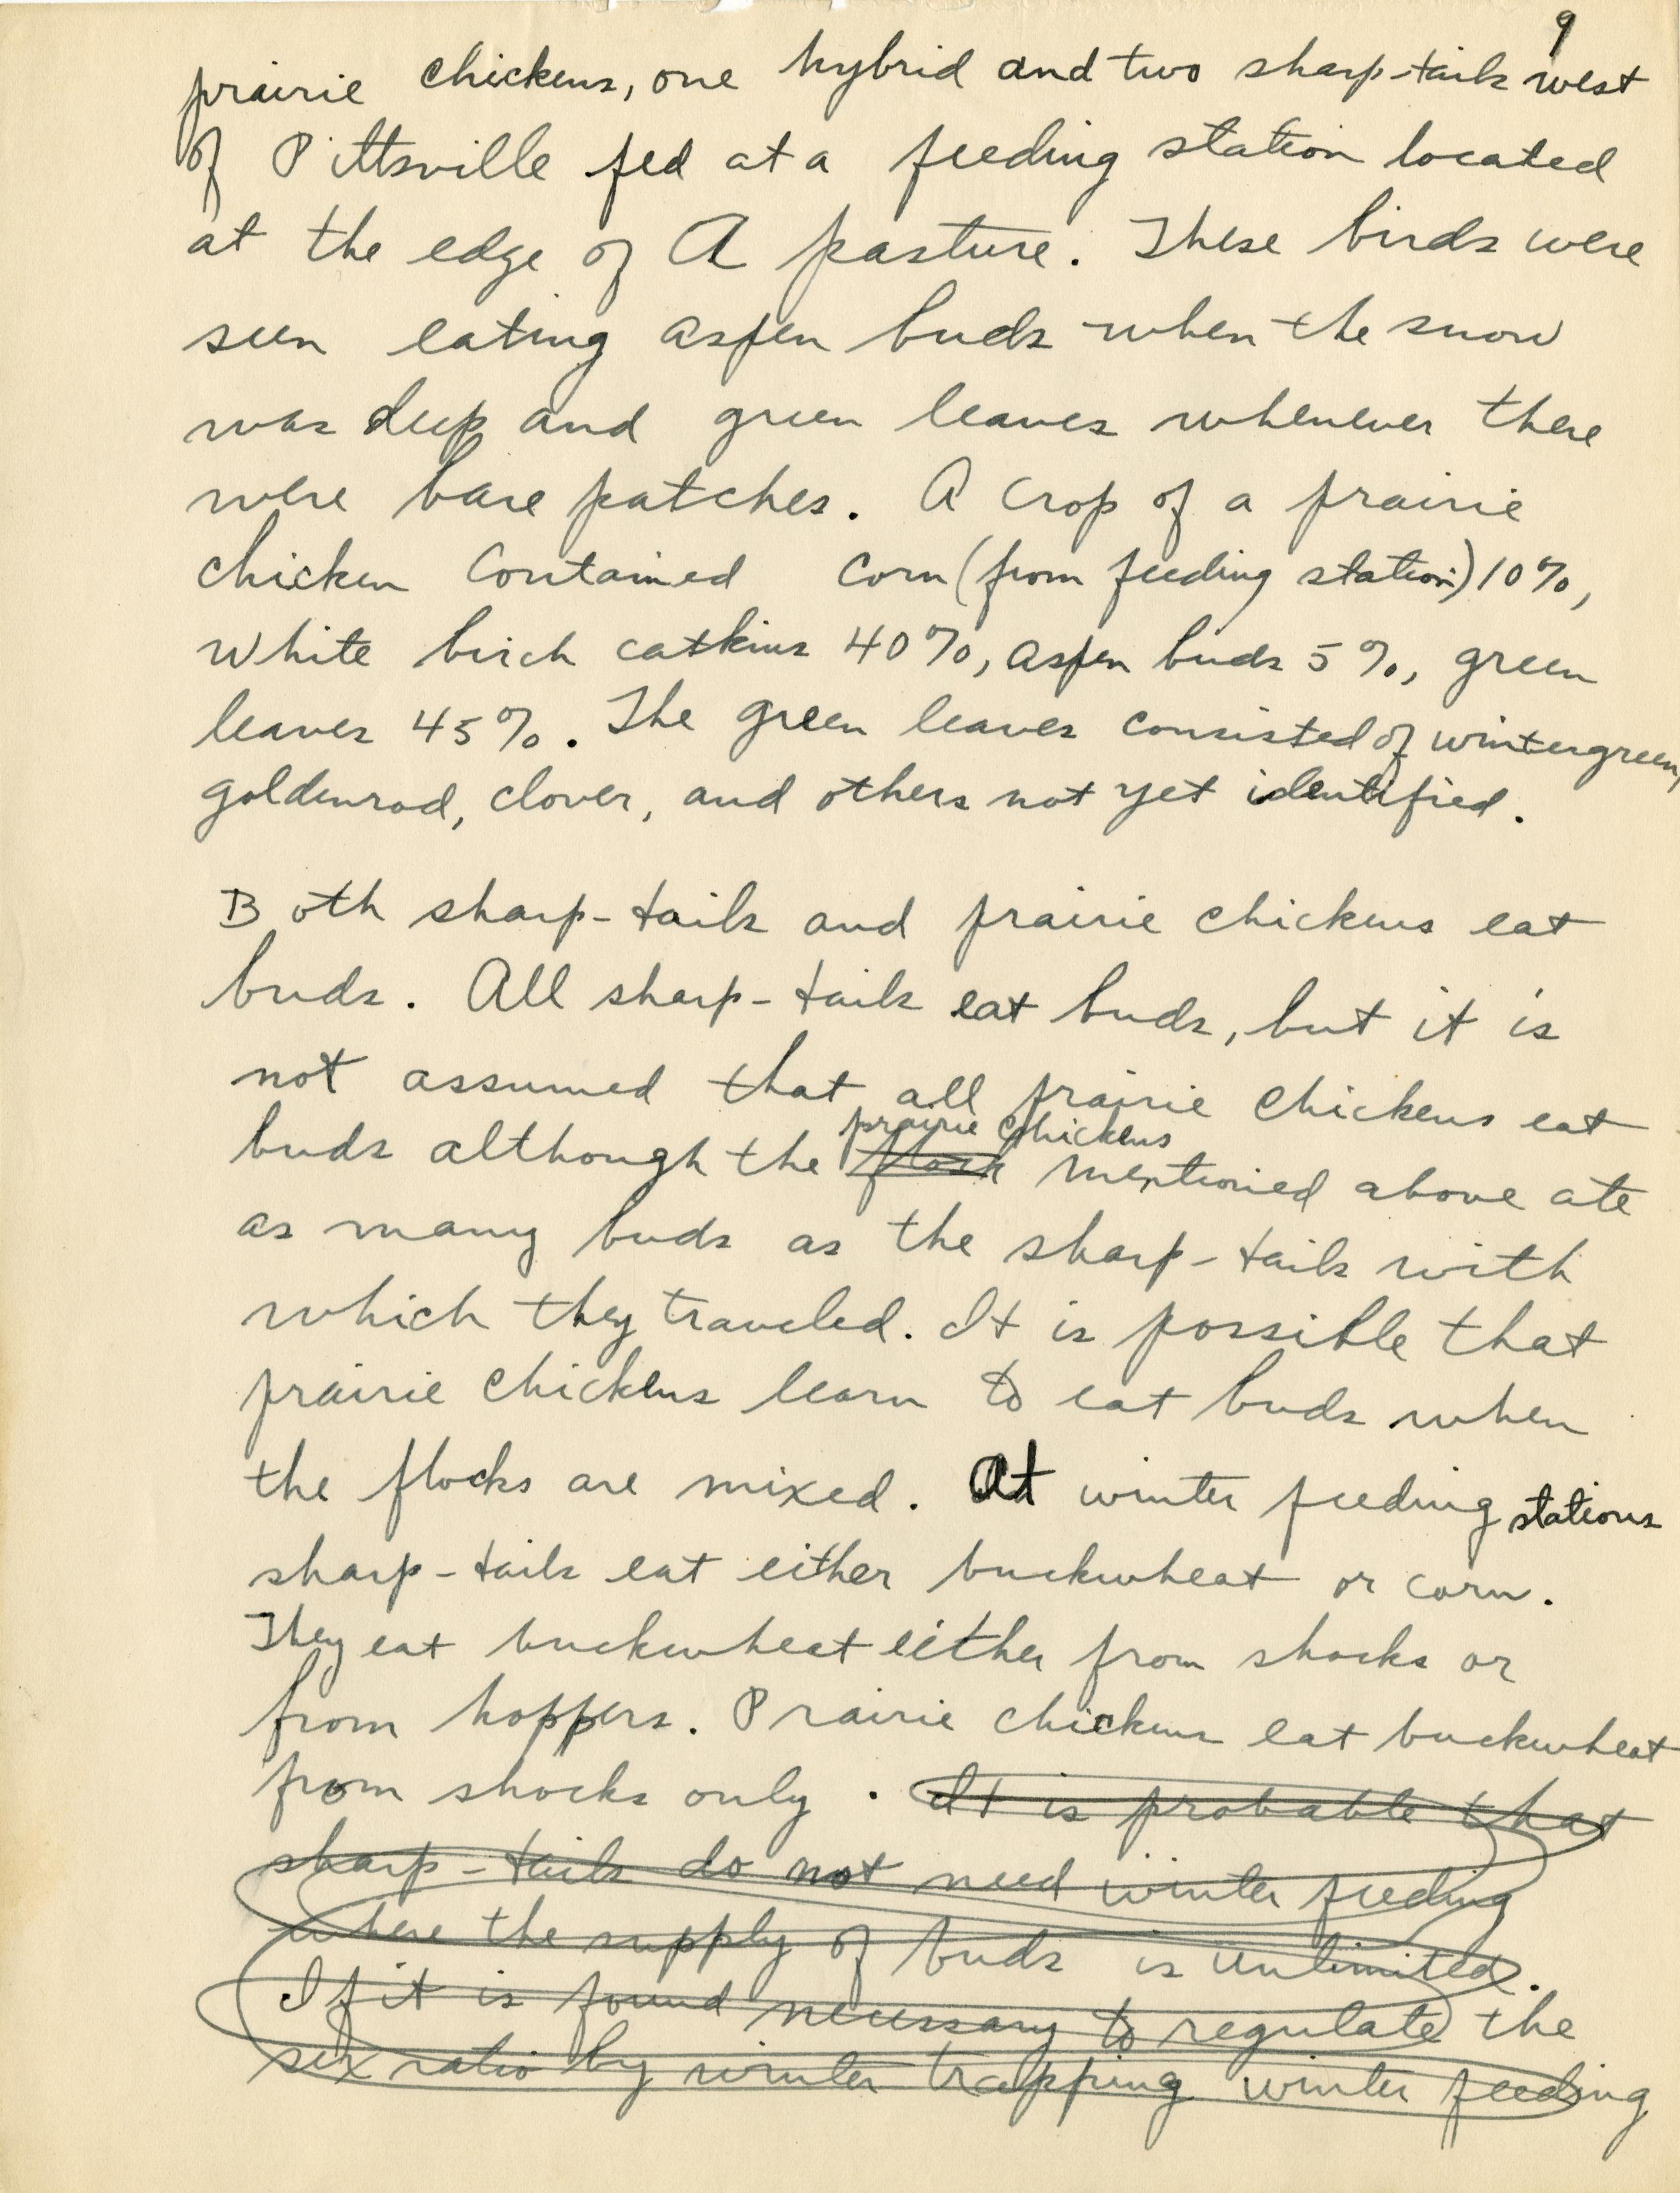 9
prairie chickens, one hybrid and two sharp-tails west
of Pittsville fed at a feeding station located
at the edge of A pasture. These birds were
seen eating aspen buds when the snow
was deep and green leaves whenever there
were bare patches. A crop of a prairie
chicken contained corn (from feeding station) 10%,
white birch catkins 40%, aspen buds 5%, green
leaves 45%. The green leaves consisted of wintergreen,
goldenrod, clover, and others not yet identified.
Both sharp-tails and prairie chickens eat
buds. All sharp-tails eat buds, but it is
not assumed that all prairie chickens eat
prairie chickens
buds although the flock mentioned above ate
as many buds as the sharp-tails with
which they traveled. It is possible that
prairie chickens learn to eat buds when
the flocks are mixed. At winter feeding stations
sharp-tails eat either buckwheat or corn.
They eat buckwheat either from shocks or
from hoppers. Prairie chickens eat buckwheat
from shocks only. It is probable that
sharp-tails do not need winter feeding
where the supply of buds is unlimited.
If it is found necessary to regulate the
sex ratio by winter trapping winter feeding